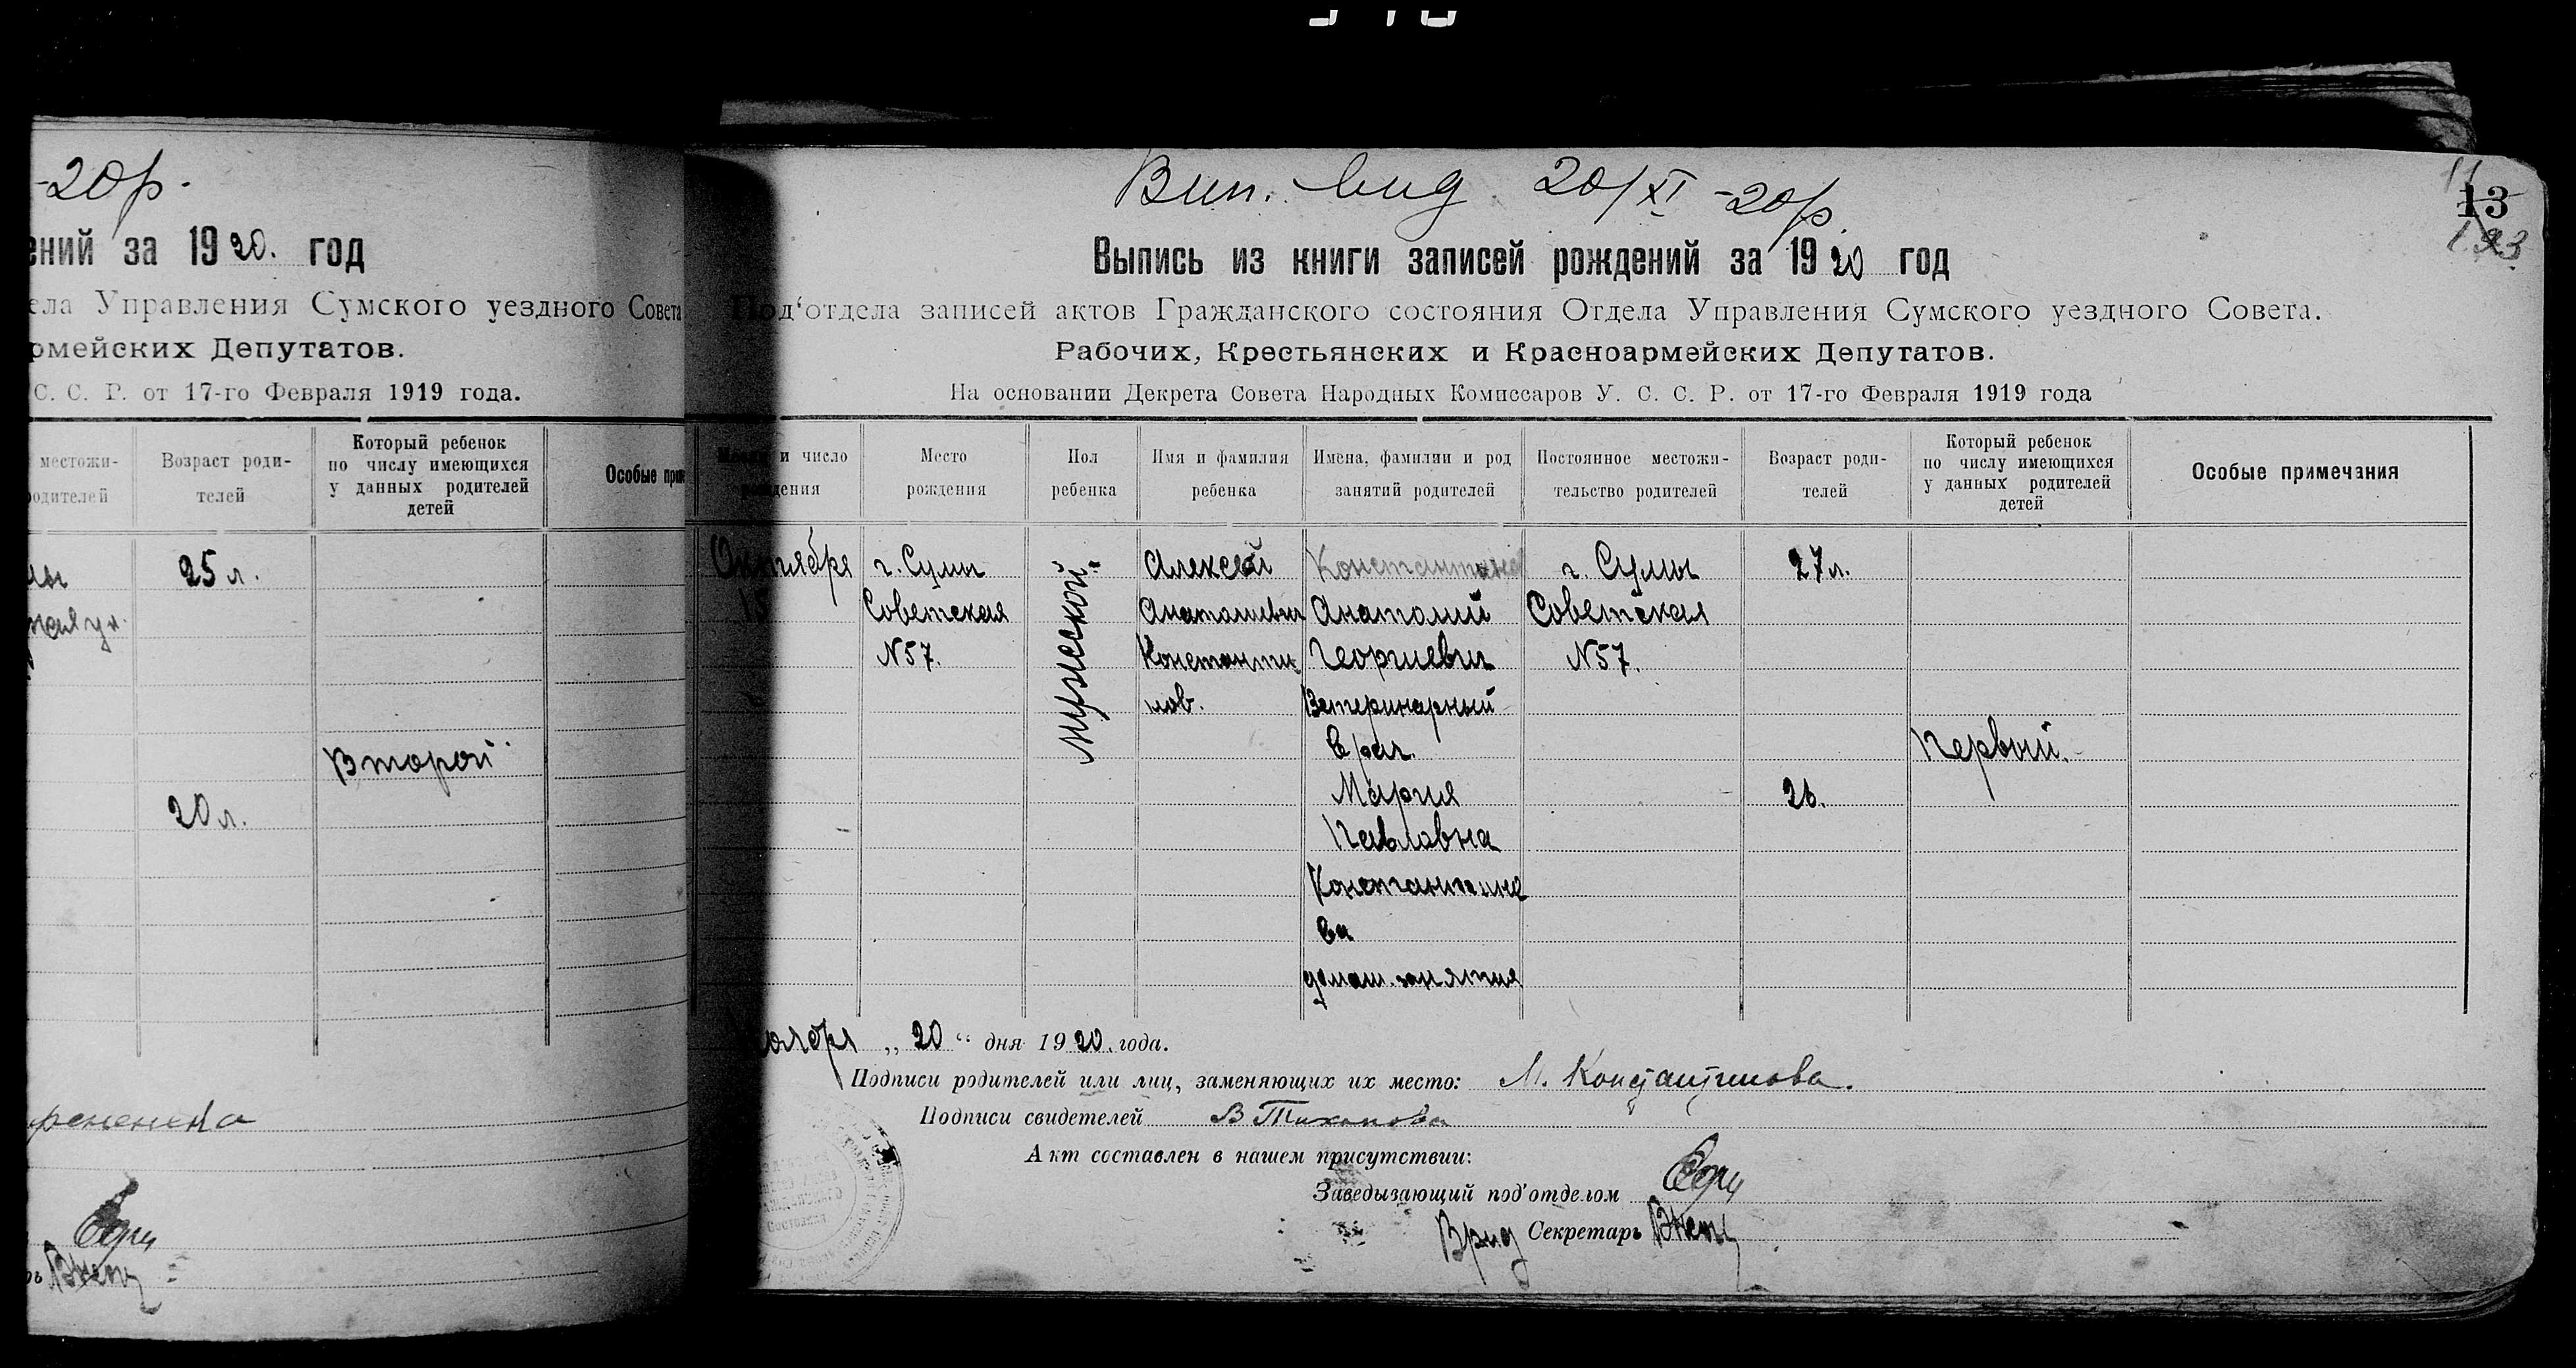 -20р.
ений за 1920. год
ела Управления Сумского уездного Совета
рмейских Депутатов.
С. С. Р. от 17-го Февраля 1919 года.
местожи-
одителей
Возраст роди-
телей
Который ребенок
по числу имеющихся
у данных родителей
детей
Особые прим
25 л.
Второй
20 л.
Вип. вид. 20/XI -20р.
13
Выпись из книги записей рождений за 1920 год
Под'отдела записей актов Гражданского состояния Отдела Управления Сумского уездного Совета.
Рабочих, Крестьянских и Красноармейских Депутатов.
На основании Декрета Совета Народных Комиссаров У. С. С. Р. от 17-го Февраля 1919 года
Месяц и число
рождения
Место
рождения
Пол
ребенка
Имя и фамилия
ребенка
Имена, фамилии и род
занятий родителей
Постоянное местожи-
тельство родителей
Возраст роди-
телей
Который ребенок
по числу имеющихся
у данных родителей
детей
Особые примечания
Октября
15
г. Сумы
Советская
N57.
мужеской
Алексей
Анатолиевич
Константи
нов.
Константинов
Анатолий
Георгиевич
Ветеринарный
врач.
Мария
Павловна
Константино
ва
домаш. занятия
г. Сумы
Советская
N57.
27 л.
26.
Первый.
Ноября „20“ дня 1920. года.
Подписи родителей или лиц, заменяющих их место: М. Константинова.
Подписи свидетелей В Тихонова
Акт составлен в нашем присутствии:
Заведывающий под'отделом
Врид Секретарь